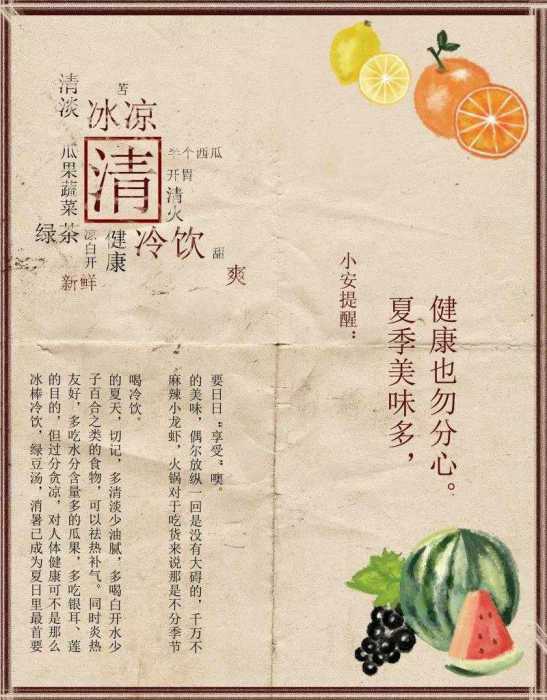 清淡
苦
冰凉
瓜果蔬菜
清
半个西瓜
开胃
清火
绿茶
凉白开
健康
冷饮
甜
新鲜
爽
小安提醒：
夏季美味多，
健康也勿分心。
冰棒冷饮，绿豆汤，消暑已成为夏日里最首要
的目的，但过分贪凉，对人体健康可不是那么
友好，多吃水分含量多的瓜果，多吃银耳、莲
子百合之类的食物，可以祛热补气。同时炎热
的夏天，切记，多清淡少油腻，多喝白开水少
喝冷饮。
麻辣小龙虾，火锅对于吃货来说那是不分季节
的美味，偶尔放纵一回是没有大碍的，千万不
要日日“享受”噢。